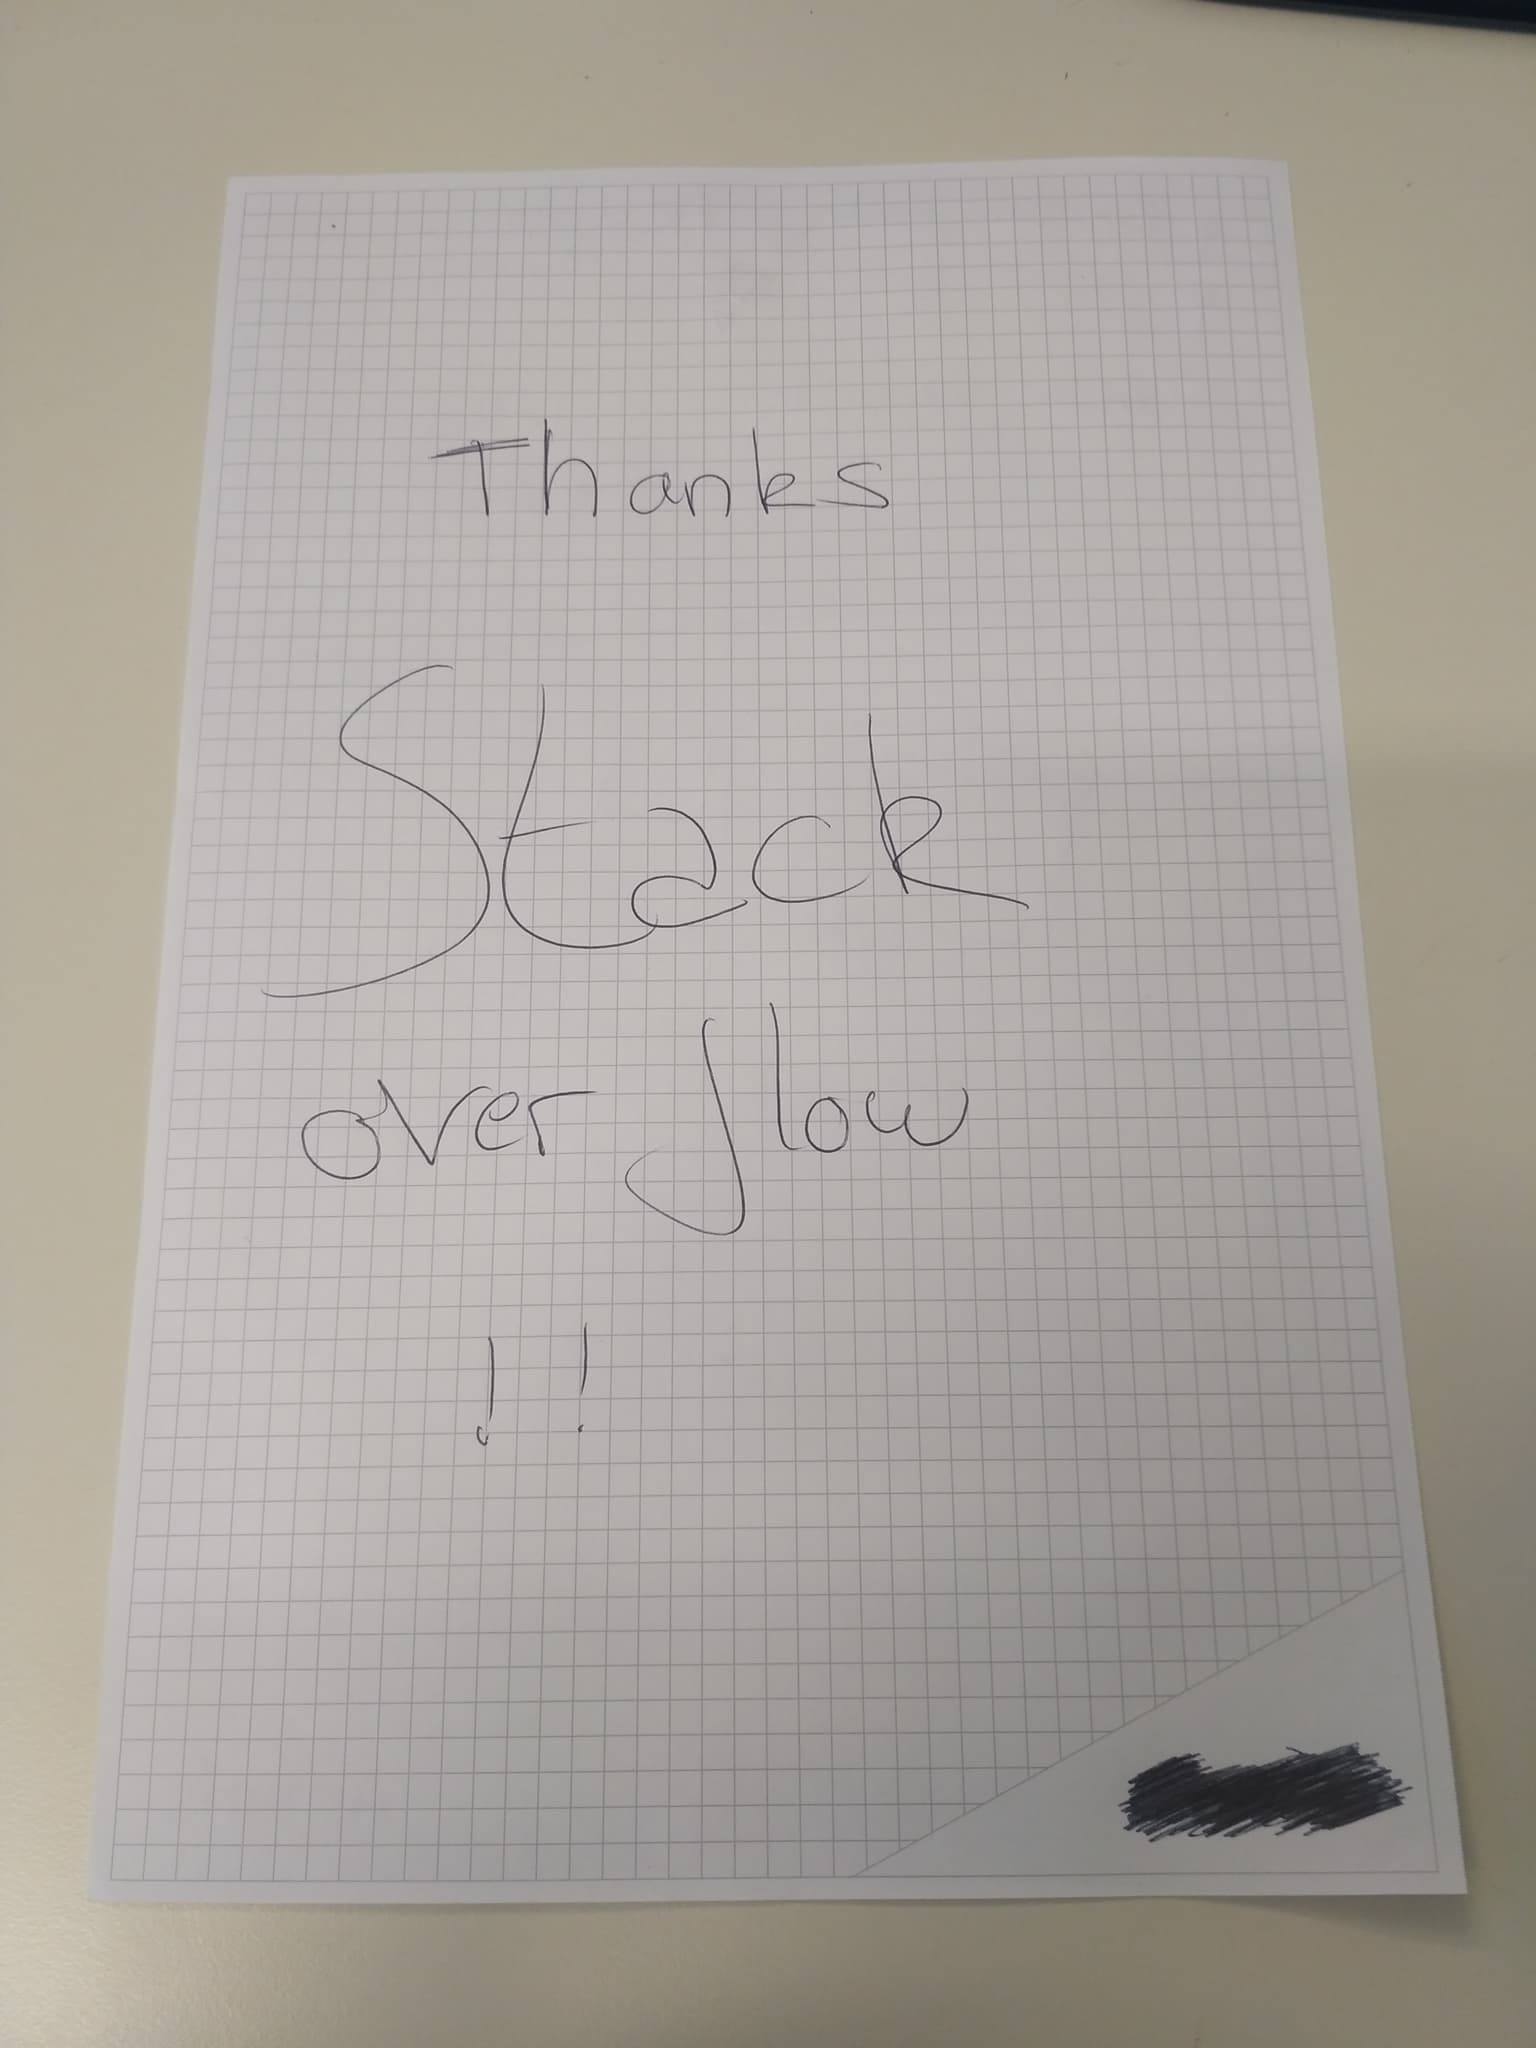 Thanks
Stack
over flow
!!